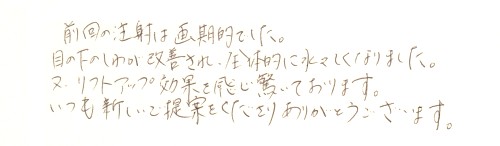 前回の注射は画期的でした。
目の下のしわが改善され、全体的に水々しくなりました。
又、リフトアップ効果を感じ驚いております。
いつも新しいご提案をくださりありがとうございます。